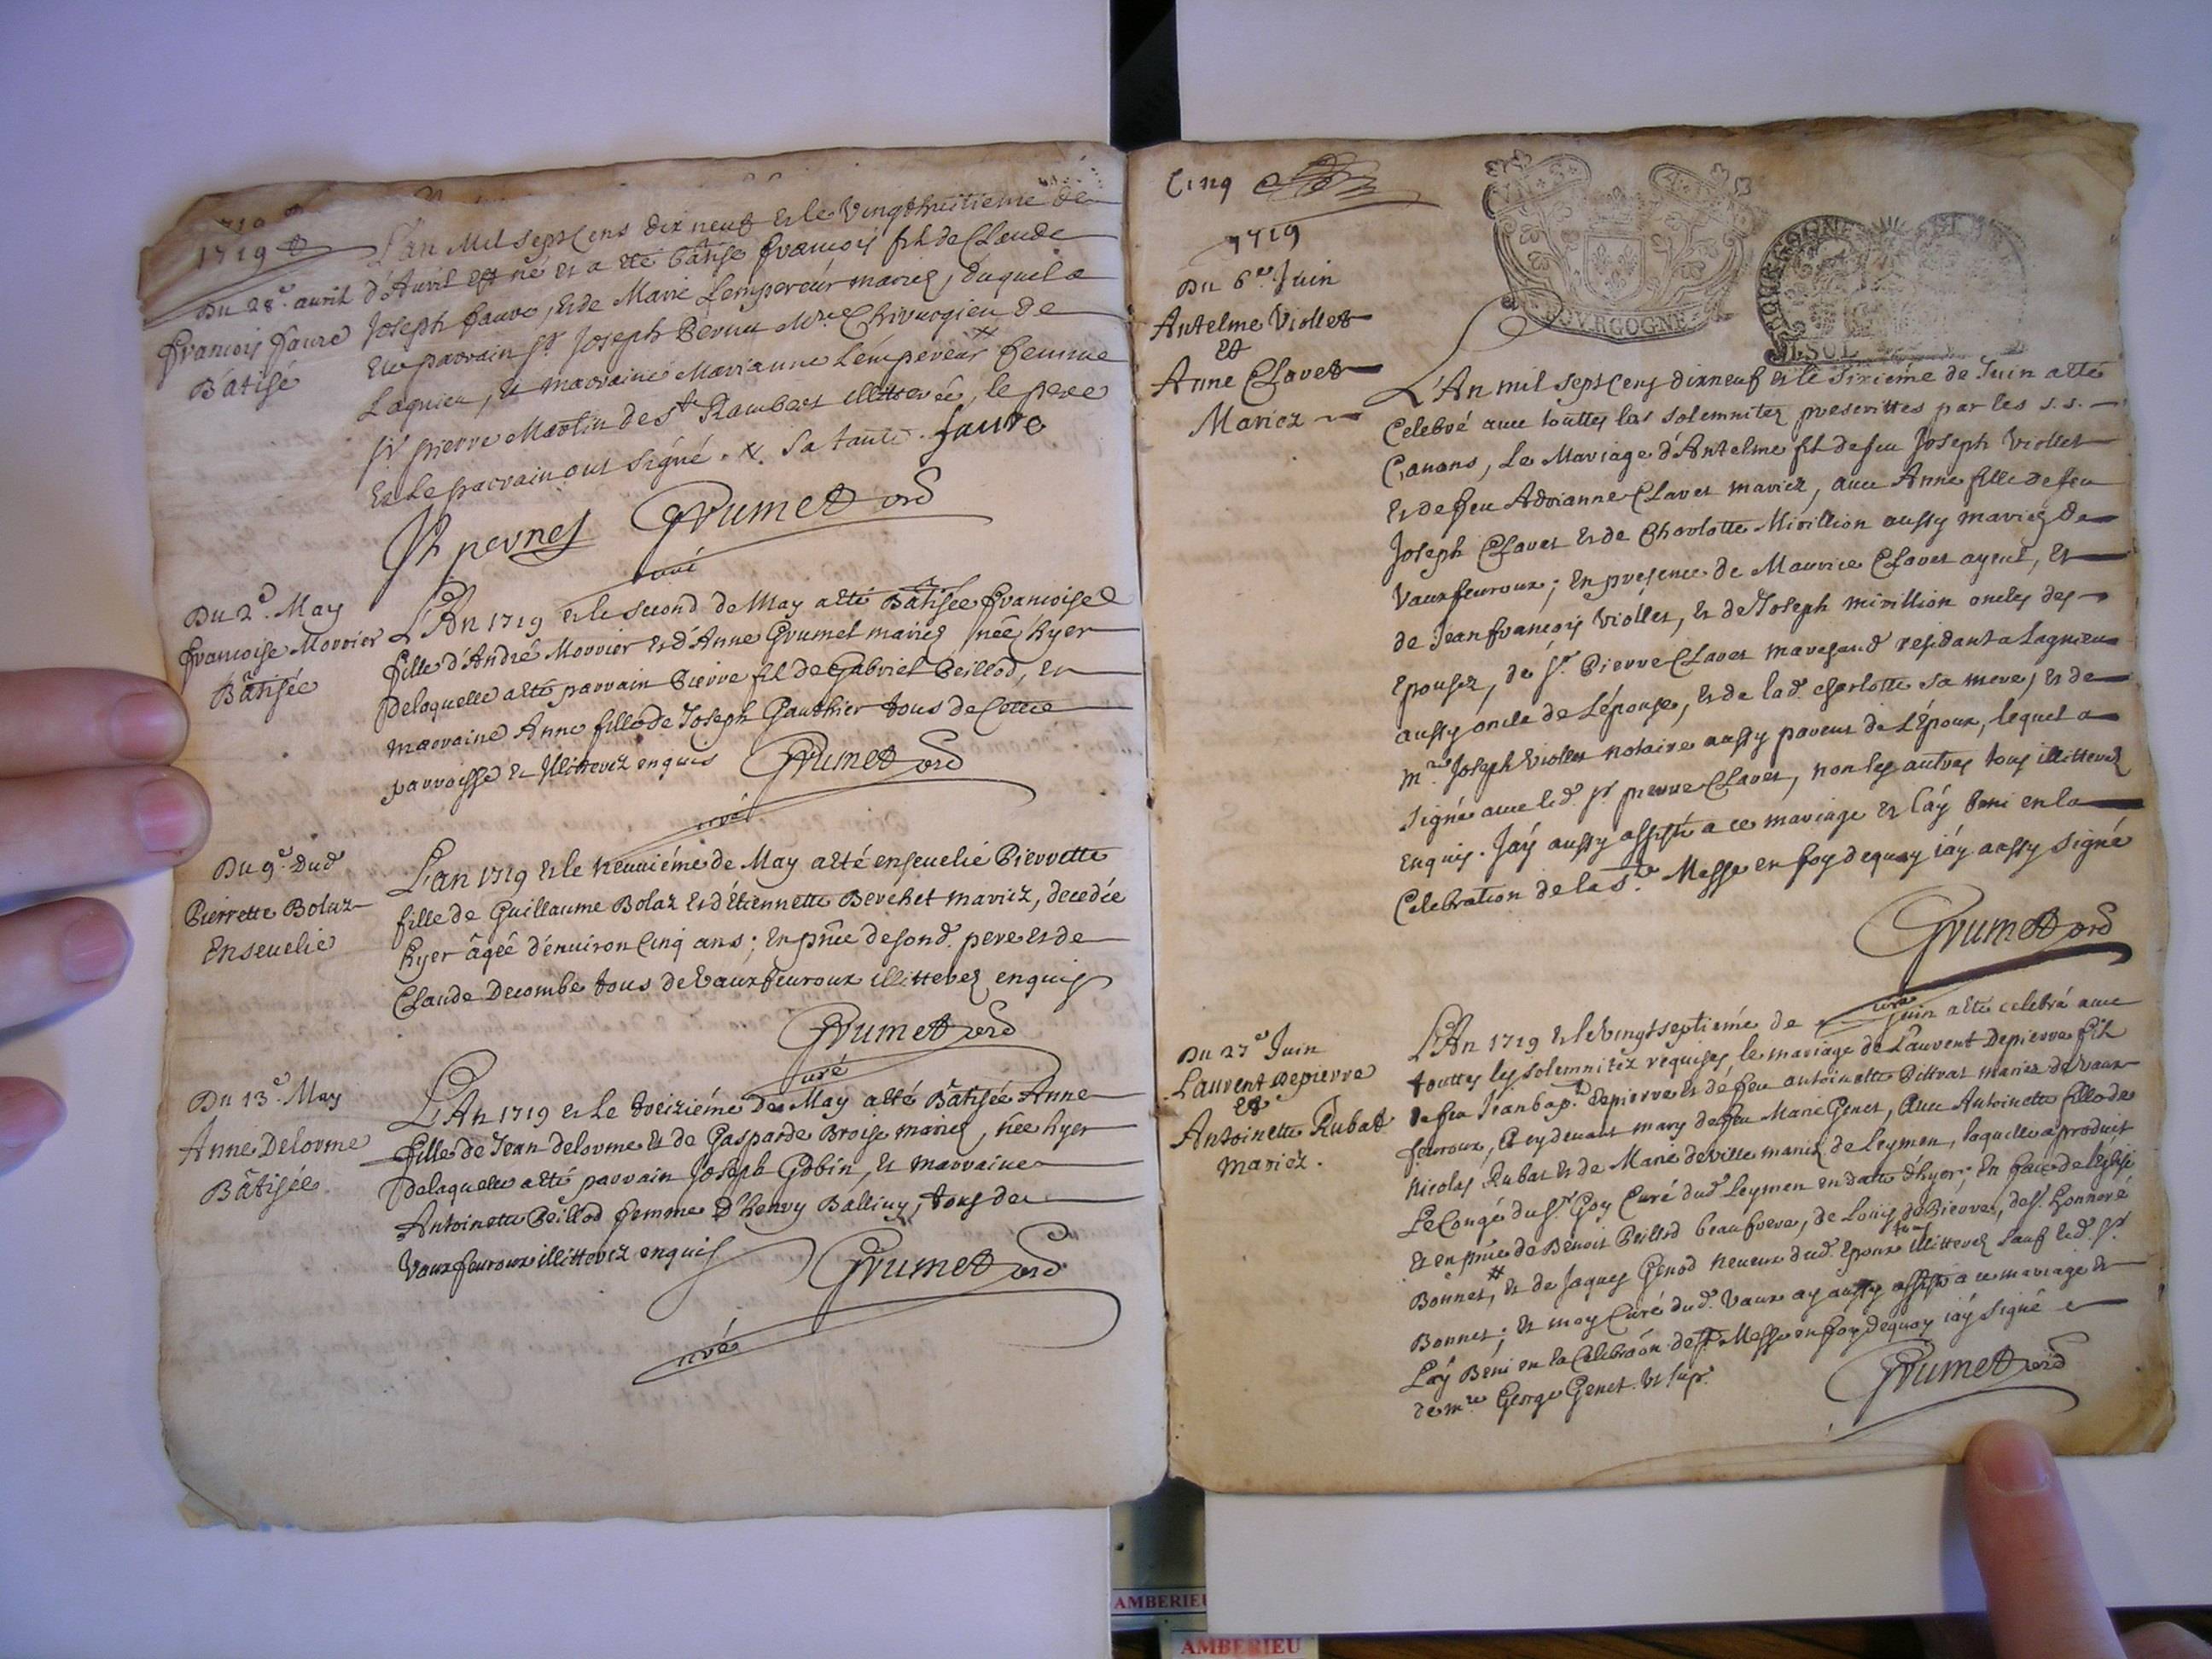 1719
Du 28e. auril
francois faure
Bâtisé
L'an Mil sept Cens dix neuf et le Vingthuitieme de
d'Avril est né et a eté bâtisé francois fils de Claude
Joseph faure, et de Marie Lempereur mariez, duquel a
eté parrain Sr. Joseph Pernu Mtre Chirurgien de
Lagnieu, et marraine Marianne Lémpereur femme
Sr pierre Martin de St Rambert illitterée, le pere
et le parrain ont signé. sa tante. faure
Jh pernet Grumet ord
curé
Du 2d. May
francoise Morrier
Bâtisée
L'An 1719 et le second de May a eté Bâtisée francoise
fille d'André Morrier et d'Anne Grumet mariez née hÿer
de laquelle a eté parrain Pierre fil de Gabriel Peillod, et
marraine Anne fille de Joseph Gauthier tous de Cette
parroisse et Illitterez enquis Grumet ord
curé
Du 9e. Dud
Pierrette Bolaz
Enseuelie
L'an 1719 et le neuuiéme de May a eté enseuelie Pierrette
fille de Guillaume Bolaz et d'Etiennette Berchet mariez, decedée
hÿer âgée d'enuiron Cinq ans; en pñce de sond. pere et de
Claude Decombe tous de Vauxfeuroux illitterez enquis
Grumet ord
curé
Du 13e. May
Anne Delorme
Bâtisée
L'An 1719 et le treiziéme de May a eté Bâtisée Anne
fille de Jean delorme et de Gasparde Broise mariez, née hyer
de laquelle a eté parrain Joseph Gobin, et marraine
Antoinette Peillod femme d'henry Balliuy, tous de
Vauxfeuroux illitterez enquis Grumet ord
curé
Cinq
1719
Du 6e. Juin
Antelme Viollet
et
Anne Clavet
Mariez
BOVRGOGNE
L'An mil sept Cens dixneuf et le sixiéme de Juin a eté
Celebré auec touttes les solemnitez prescrittes par les s.s.
Canons, le Mariage d'Antelme fil de feu Joseph Viollet
et de feu Adrianne Clavet mariez, auec Anne fille de feu
Joseph Clavet et de Charlotte Mirillion aussy mariez de
Vauxfeuroux; en presence de Maurice Clavet ayeul, et
de Jeanfrancois Viollet, et de Joseph mirillion oncles des
epousez, de Sr. Pierre Clavet marchand residant a Lagnieu
aussy oncle de L'épouse, et de lad. charlotte sa mere, et de
mre. Joseph Viollet notaire aussy parent de l'Époux, lequel a
signé auec led. Sr pierre Clavet, non les autres tous illitterez
enquis. J'aÿ aussy assisté a ce mariage et l'aÿ beni en la
Celebration de la Ste. Messe en foy dequoy i'aÿ aussy signé
Grumet ord
curé
Du 27e Juin
Laurent depierre
et
Antoinette Rubat
mariez.
L'An 1719 et le Vingtseptiéme de Juin a eté celebré auec
touttes les solemnitéz requises le mariage de Laurent Depierre fil
de feu Jeanbapt. depierre et de feu antoinette Pittrat mariez de Vaux
feuroux, et cydeuant mary de feu Marie Genet, auec Antoinette fille de
Nicolas Rubat et de Marie deville mariez de Leymen, laquelle a produit
le Congé du Sr. Goy Curé dud. Leymen en datte d'hyer; en face de l'église
et en pñce de Benoit Peillod beaufrere, de Louis duPierre, de Sr. honnoré
Bonnet, et de Jaques Genod neueux dud. epoux tous illitterez sauf led. Sr.
Bonnet; et moy Curé dud. Vaux ay aussy assisté a ce mariage et
l'aÿ Beni en la Celebraõn de Ste Messe en foy dequoy i'aÿ signé
de mre George Genet. et supr. Grumet ord
AMBERIEU
AMBERIEU